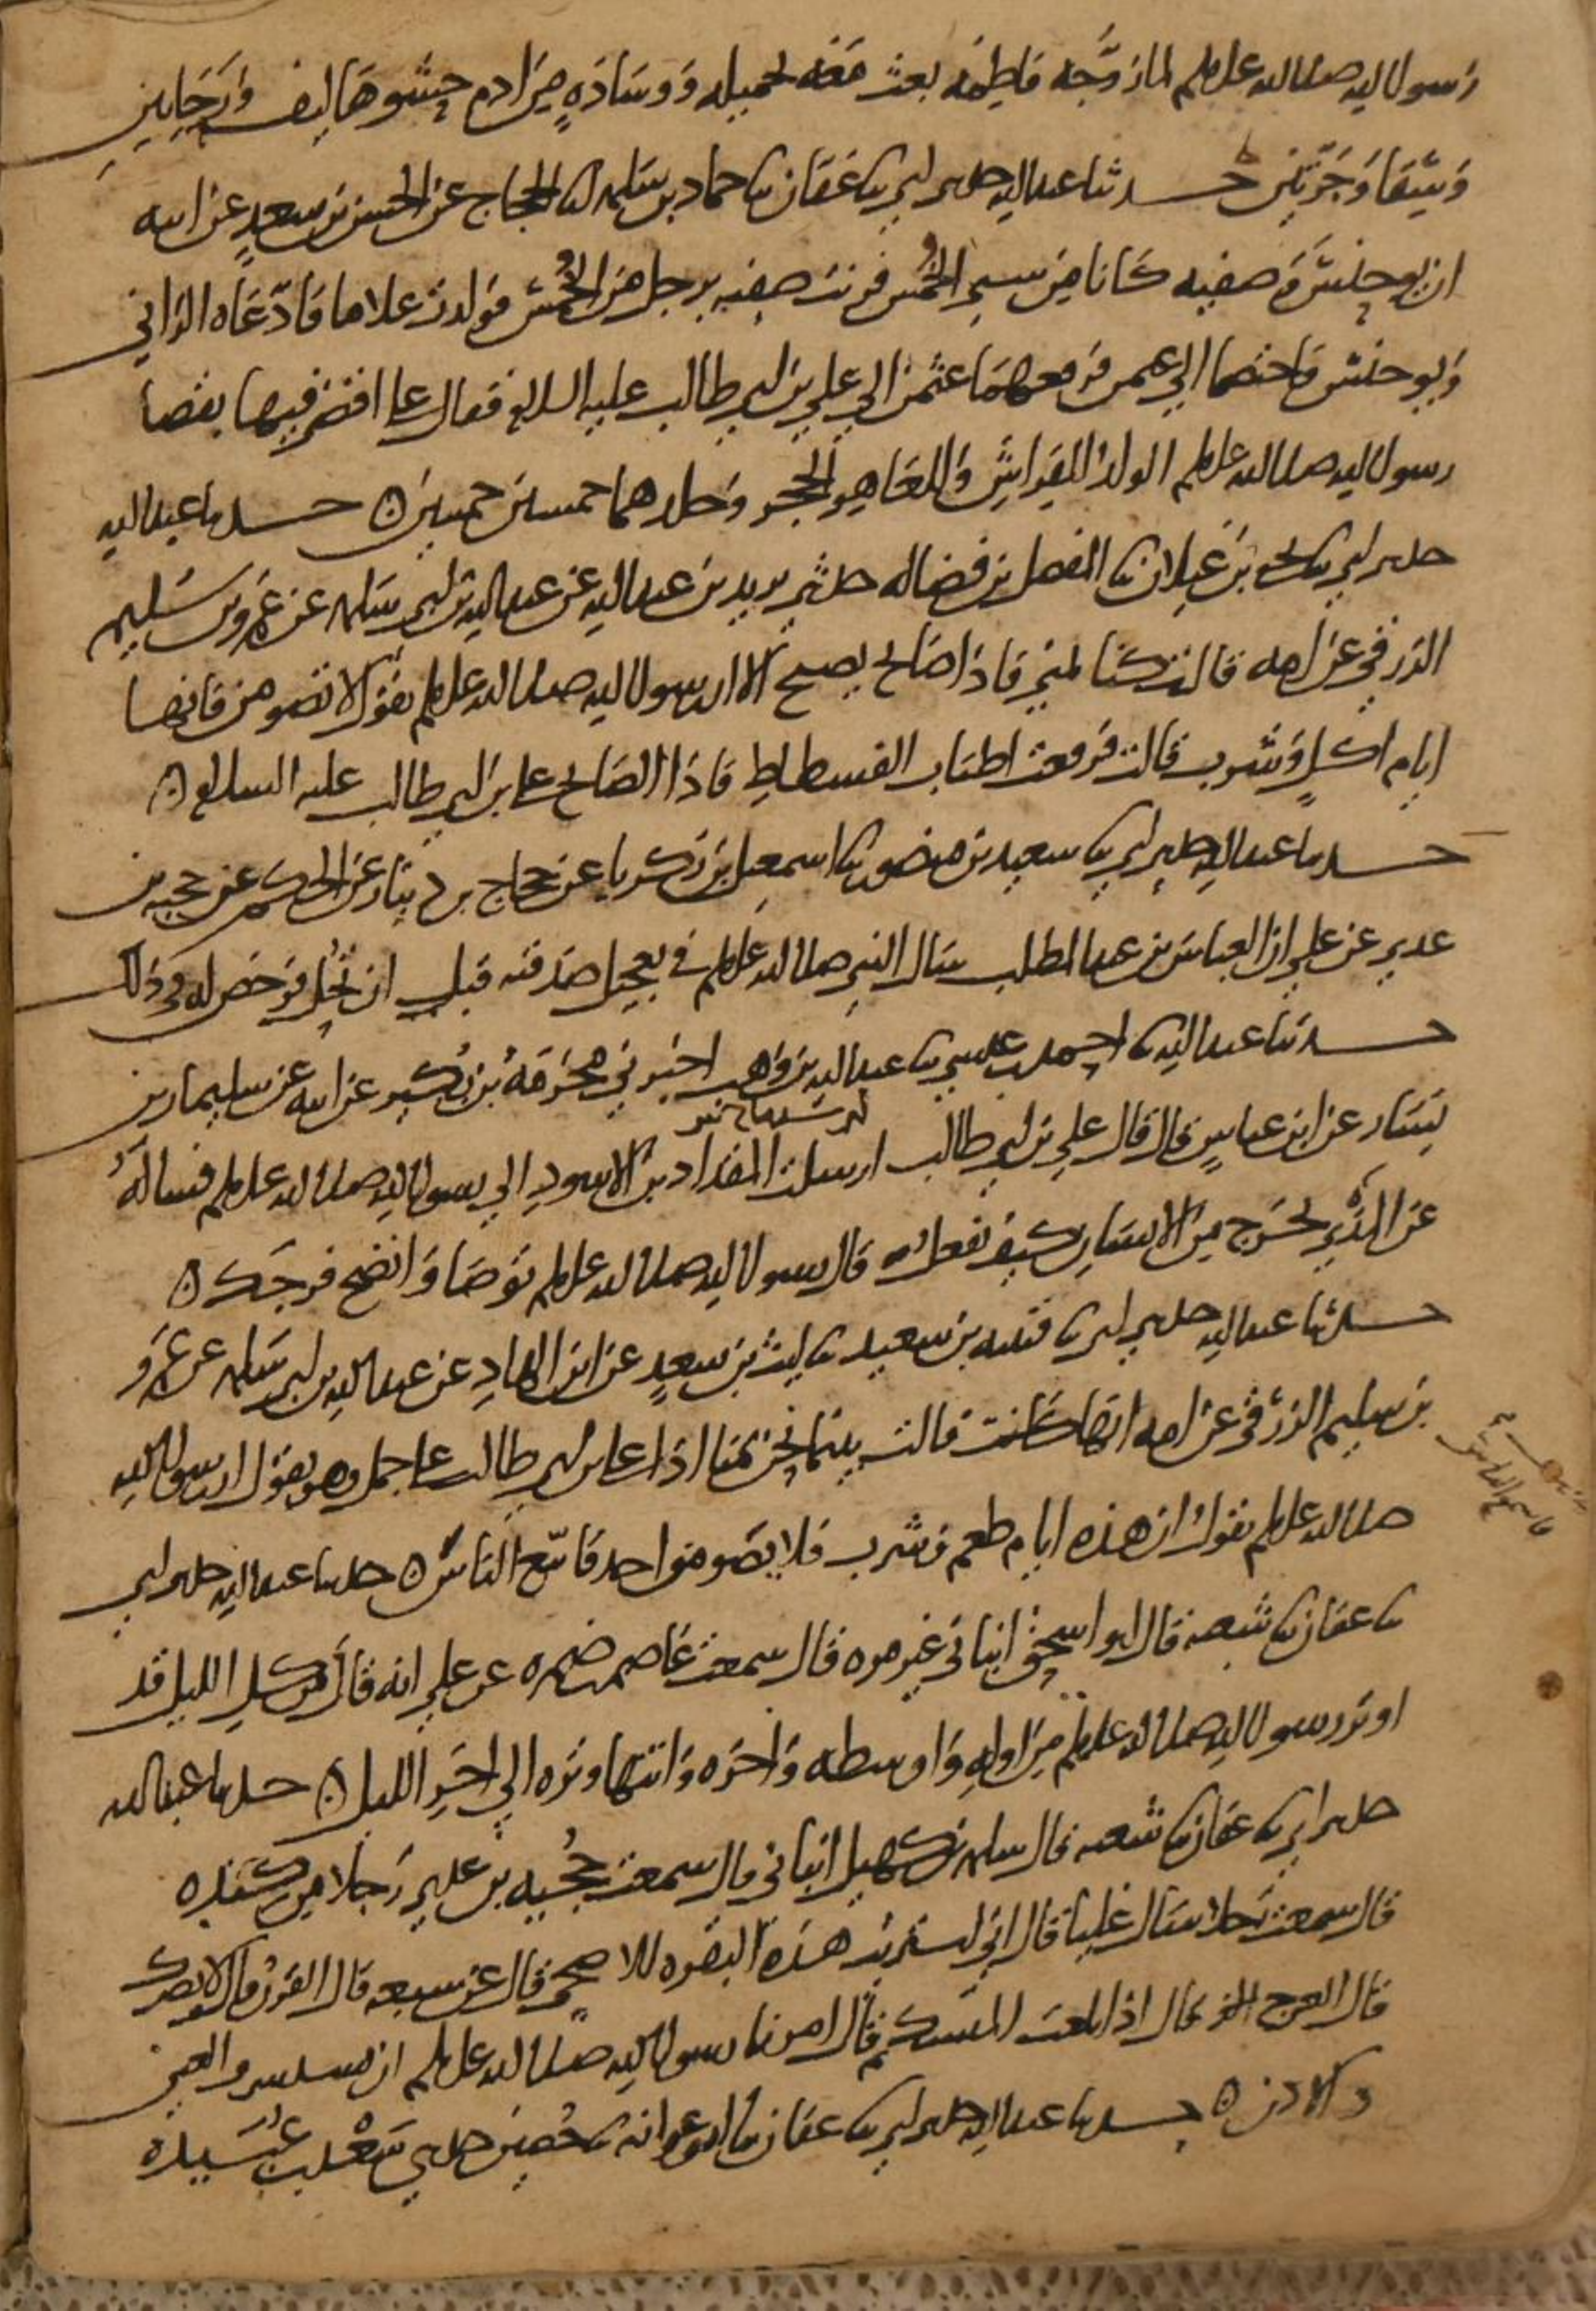 رسول الله صلى الله عليه وسلم لما زوجه فاطمة بعث معه بخميله ووسادة من ادم حشوها ليف ورحايين
وسقا وجرتين حدثنا عبد الله حدثني ابي نا عفان نا حماد بن سلمه انا الحجاج عن الحسن بن سعد عن ابيه
ان يحنس وصفيه كانا من سبي الخمس فزنت صفيه برجل من الخمس فولدت غلاما فادعاه الزاني
ويحنس فاختصما الى عثمن فرفعهما عثمن الي علي بن ابي طالب عليه السلام فقال علي اقضي فيهما بقضا
رسول الله صلى الله عليه وسلم الولد للفراش وللعاهر الحجر وجلدهما خمسين خمسين ه حدثنا عبد الله
حدثني ابي نا يحيى بن غيلان نا المفضل بن فضاله حدثني يزيد بن عبد الله عن عبد الله بن ابي سلمه عن عمرو بن سليم
الزرقي عن امه قالت كنا بمنى فاذا صايح يصيح الا ان رسول الله صلى الله عليه وسلم يقول لا تصومن فانها
ايام اكل وشرب قالت فرفعت اطناب الفسطاط فاذا الصايح علي بن ابي طالب عليه السلام ه
حدثنا عبد الله حدثني ابي نا سعيد بن منصور نا اسمعيل بن زكريا عن حجاج بن دينار عن الحكم عن حجيه بن
عدي عن علي ان العباس بن عبد المطلب سال النبي صلى الله عليه وسلم في تعجيل صدقته قبل ان تحل فرخص له في ذلك
حدثنا عبد الله نا احمد بن عيسى نا عبد الله بن وهب اخبرني مخرمة بن بكير عن ابيه عن سليمان بن
يسار عن ابن عباس قال قال علي بن ابي طالب ارسلت المقداد بن الاسود الي رسول الله صلى الله عليه وسلم فساله
عن المذي يخرج من الانسان كيف يفعل به قال رسول الله صلى الله عليه وسلم توضا وانضح فرجك ه
حدثنا عبد الله حدثني ابي نا قتيبه بن سعيد نا ليث بن سعد عن ابن الهاد عن عبد الله بن ابي سلمه عن عمرو
بن سليم الزرقي عن امه انها قالت بينما نحن بمنا اذا علي بن ابي طالب على جمل وهو يقول ان رسول الله
صلى الله عليه وسلم يقول ان هذه ايام طعم وشرب فلا يصومن احد فاتبع الناس ه حدثنا عبد الله حدثني ابي
نا عفان نا شعبه قال ابو اسحق انباني غير مره قال سمعت عاصم بن ضمره عن علي انه قال من كل الليل قد
اوتر رسول الله صلى الله عليه وسلم من اوله واوسطه واخره وانتها وتره الي اخر الليل ه حدثنا عبد الله
حدثني ابي نا عفان نا شعبه قال سلمه بن كهيل انباني قال سمعت حجيه بن عدي رجلا من كنده
قال سمعت رجلا سال عليا قال اني اشتريت هذه البقره للاضحى قال عن سبعه قال القرن قال لا يضرك
قال العرج قال اذا بلغت المنسك قال امرنا رسول الله صلى الله عليه وسلم ان نستشرف العين
والاذن ه حدثنا عبد الله حدثني ابي نا عفان نا ابو عوانه نا حصين حدثني سعد بن عبيده